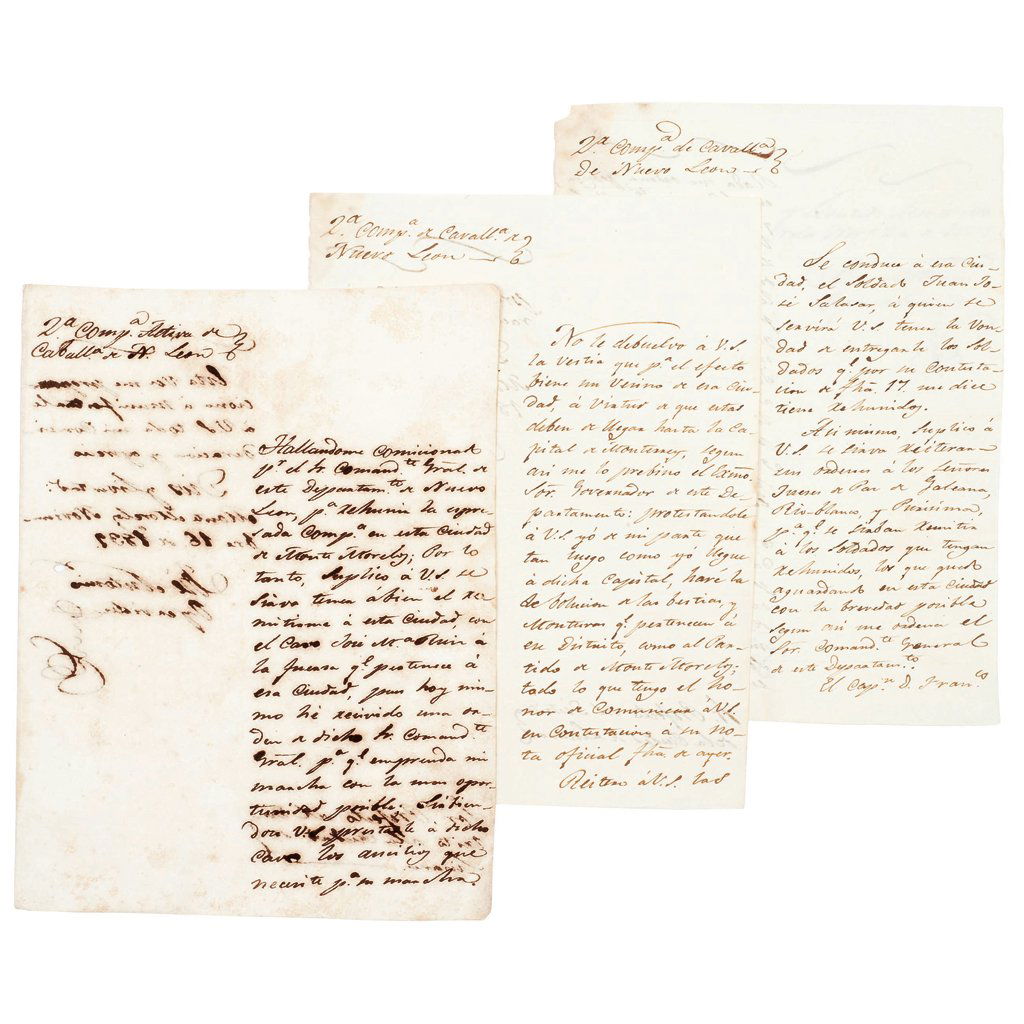 2.a Comp.a Activa de
Cavall.a de N. Leon
Hallandome comicionad.
p.r el Sr Comand.te Gral. de
este Deppartam.to de Nuevo
Leon, p.a rehunir la espre-
sada Comp.a en esta Ciudad
de Monte Morelos; Por lo
tanto, Suplico á V.S. se
sirva tener abien el re-
mitirme á esta Ciudad, con
el Cavo José M.a Ruiz á
la fuersa q.e pertenece á
esa Ciudad, pues hoy mis-
mo hé recivido una or-
den de dicho Sr. Comand.te
Gral. p.a q.e emprenda mi
marcha con la mas opor-
tunidad posible; Sirbien-
dose V.S. prestarle á dicho
Cavo los aucilios que
necesite p.a su marcha.
2.a Comp.a de Cavall.a de
Nuevo Leon
No le debuelvo á V.S.
la vestia que p.a el efecto
biene un Vecino de esa Ciu-
dad, á Virtud de que estas
deben de llegar hasta la Ca-
pital de Monterrey, segun
asi me lo prebino el Exmo.
Sor. Governador de este De-
partamento: protestandole
á V.S. yó de mi parte que
tan luego como yó llegue
á dicha Capital, haré la
debolucion de las bestias, y
Monturas q.e pertenecen á
ese Distrito, como al Par-
tido de Monte Morelos;
todo lo que tengo el ho-
nor de Comunicar á V.S.
en Contestacion á su no-
ta oficial fha. de ayer.
Reitero á V.S. las
2.a Comp.a de Cavall.a
De Nuevo Leon
Se conduce á esa Ciu-
dad, el Soldado Juan Jo-
sé Salasar, á quien se
servirá V.S. tener la Von-
dad de entregarle los Sol-
dados q.e por su Contesta-
cion de fha. 17 me dice
tiene rehunidos.
Asi mismo, suplico á
V.S. se sirva reiterar
sus ordenes á los Señores
Jueses de Paz de Galeana,
Rio-blanco, y Purisima,
p.a q.e se sirban remitir
á los Soldados que tengan
rehunidos, los que quedo
aguardando en esta Ciudad
con la brevedad posible
segun asi me ordena el
Sor. Comand.te General
de este Deppartam.to
El Cap.n D. Fran.co